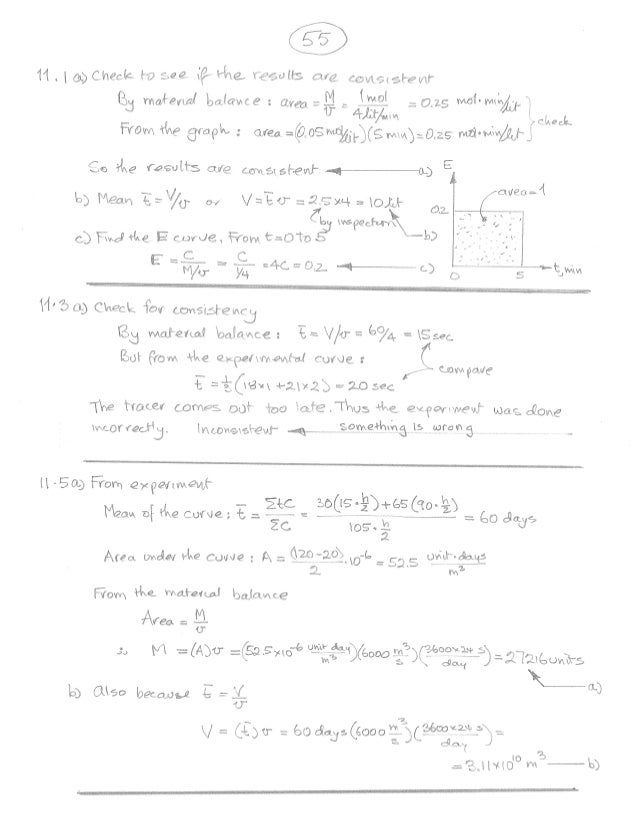 55
11.1 a) Check to see if the results are consistent
By material balance : area = M/v = 1 mol / 4 lit/min = 0.25 mol·min/lit
From the graph : area = (0.05 mol/lit)(5 min) = 0.25 mol·min/lit } check
So the results are consistent ← a)
E
area=1
0.2
0 5 t, min
b) Mean t̄ = V/v or V = t̄ v = 2.5 x 4 = 10 lit
by inspection b)
c) Find the E curve. From t=0 to 5
E = C / M/v = C / ¼ = 4C = 0.2 ← c)
11.3 a) Check for consistency
By material balance : t̄ = V/v = 60/4 = 15 sec
But from the experimental curve :
compare
t̄ = ⅓(18x1 + 21x2) = 20 sec
The tracer comes out too late. Thus the experiment was done
incorrectly. Inconsistent ← something is wrong
11.5 a) From experiment
Mean of the curve : t̄ = ΣtC / ΣC = 30(15·h/2) + 65(90·h/2) / 105·h/2 = 60 days
Area under the curve : A = (120-20)/2 ·10⁻⁶ = 52.5 unit·days/m³
From the material balance
Area = M/v
∴ M = (A)v = (52.5x10⁻⁶ unit day/m³)(6000 m³/s)(3600x24 s/day) = 27216 units
a)
b) Also because t̄ = V/v
V = (t̄)v = 60 days (6000 m³/s)(3600x24 s/day) =
= 3.11x10¹⁰ m³ — b)